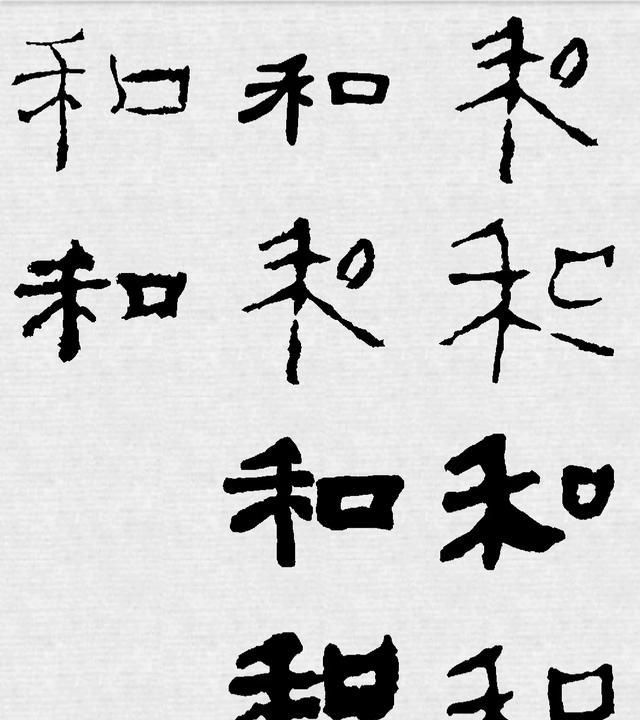 和 和 和
和 和 和
和 和
和 和